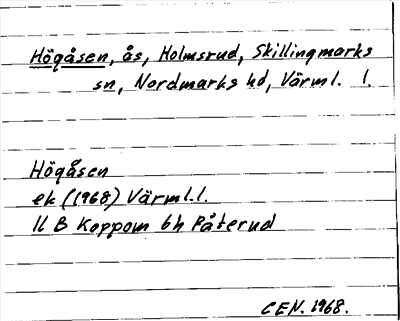 Högåsen, ås, Holmsrud, Skillingmarks
sn, Nordmarks hd, Värml. l.
Högåsen
ek (1968) Värml.l.
11 B Koppom 6h Påterud
CEN. 1968.